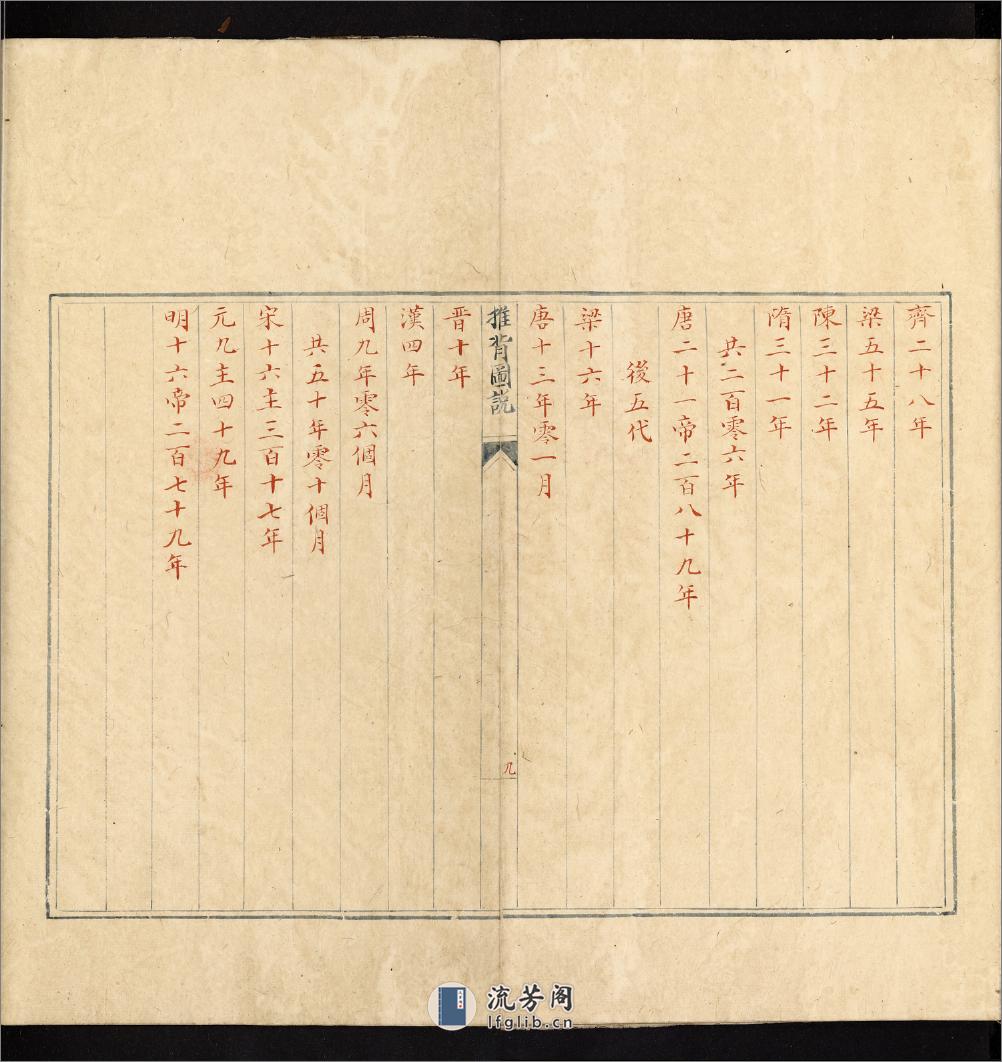 齊二十八年
梁五十五年
陳三十二年
隋三十一年
共二百零六年
唐二十一帝二百八十九年
後五代
梁十六年
唐十三年零一月
推背圖說
九
晋十年
漢四年
周九年零六個月
共五十年零十個月
宋十六主三百十七年
元九主四十九年
明十六帝二百七十九年
流芳阁
lfglib.cn